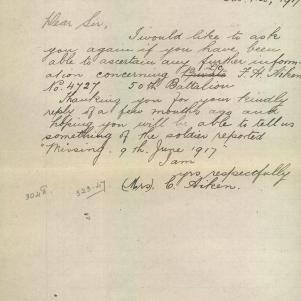 Dear Sir,
I would like to ask
you again if you have been
able to ascertain any further inform-
ation concerning Private F. H. Aiken
No. 4727 50th Battalion
Thanking you for your kindly
reply of a few months ago and
hoping you will be able to tell us
something of the soldier reported
"Missing. 9th. June 1917"
I am
yrs respectfully
(Mrs) C. Aiken.